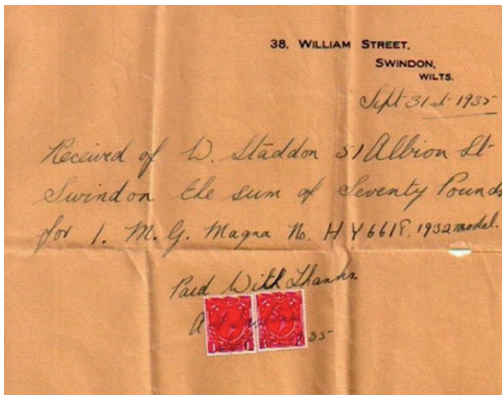 38, WILLIAM STREET,
SWINDON,
WILTS.
Sept 31st 1935
Received of W. Staddon 51 Albion St
Swindon the sum of Seventy Pounds
for 1. M.G. Magna No. HY6618, 1932 model.
Paid With Thanks
1 1
35